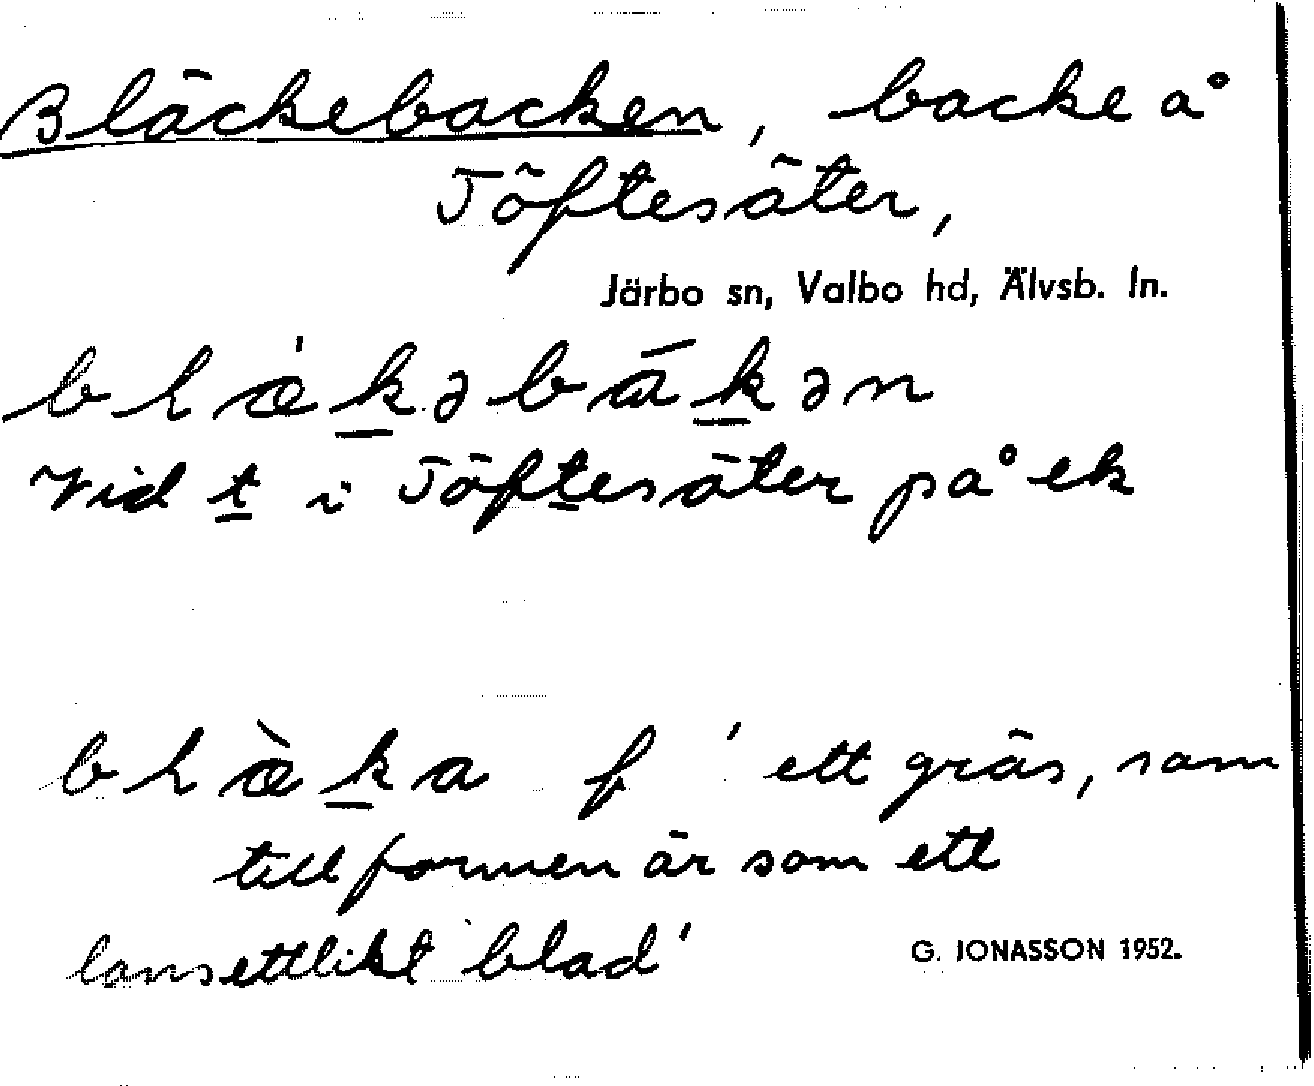 Bläckebacken, backe å
Töftesäter,
Järbo sn, Valbo hd, Älvsb. ln.
blæ̀k̲əbāk̲ən
Vid t̲ i Töft̲esäter på ek
blæ̀k̲a f 'ett gräs, som
till formen är som ett
lansettlikt blad'
G. JONASSON 1952.